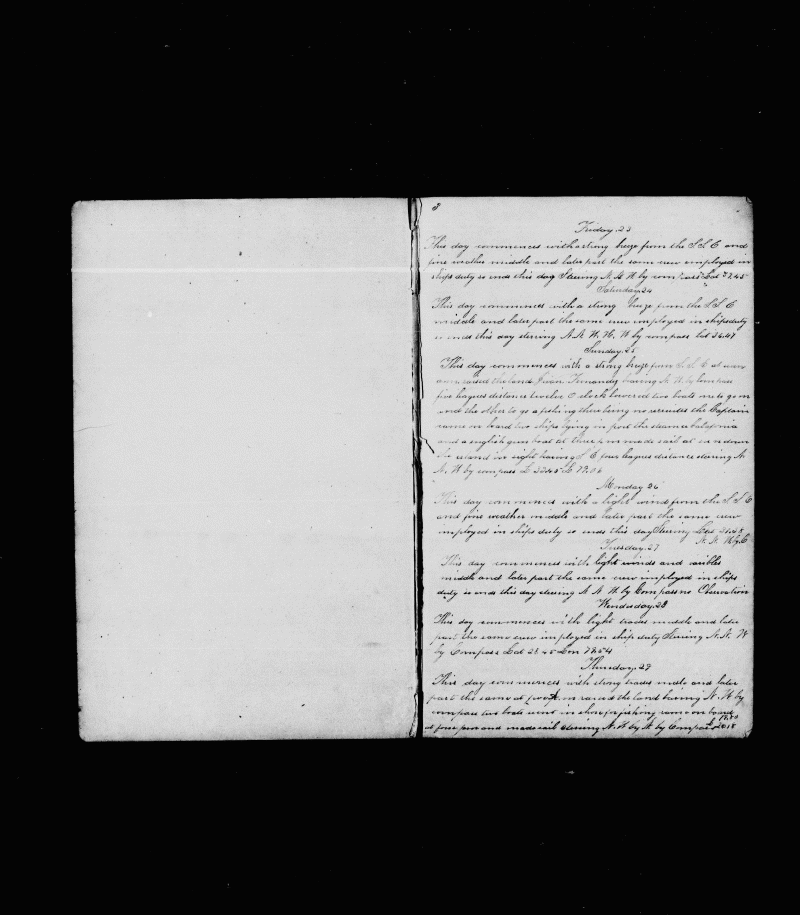 Friday 23
This day commences with a strong breze from the S S E and
fine weather middle and later part the same crew employed in
ships duty so ends this day Steering N.N.W by compass Lat 37.45
Saturday 24
This day commences with a strong breze from the S S E
middle and later part the same crew imployed in ships duty
so ends this day sterring N.N W. by compass Lat
Sunday 25
This day commences with a strong breze from S. S. E at
raised the land Juan Fernandez bearing N. W by Compass
five leagues distance twelve O clock lowered two boats one to go on
and the other to go a fishing there being no recruites the Captain
came on board two ships lying in port the steamer
and a english gun boat at three p m made sail at sundown
the island in sight baring S E four leagues distance stering N
N. W by compass
Monday 26
This day commences with a light wind from the S S E
and fine weather middle and later part the same crew
imployed in ships duty so ends this day Sterring Lat
N. N. W by C
Tuesday 27
This day commences with light winds and
middle and later part the same crew imployed in ships
duty so ends this day sterring N N W by Compass no Observation
Wendnsday 28
This day commences with light trades middle and later
part the same crew imployed in ship duty Sterring N.N. W
by Compass Lat 23 45 Lon 79.54
Thursday, 29
This day commences with strong trades midle and later
part the same at four A. m raised the land baring N. W by
compass two boats went in shore for fishing came on board
at four p m and made sail sterring N. W by N by Compass